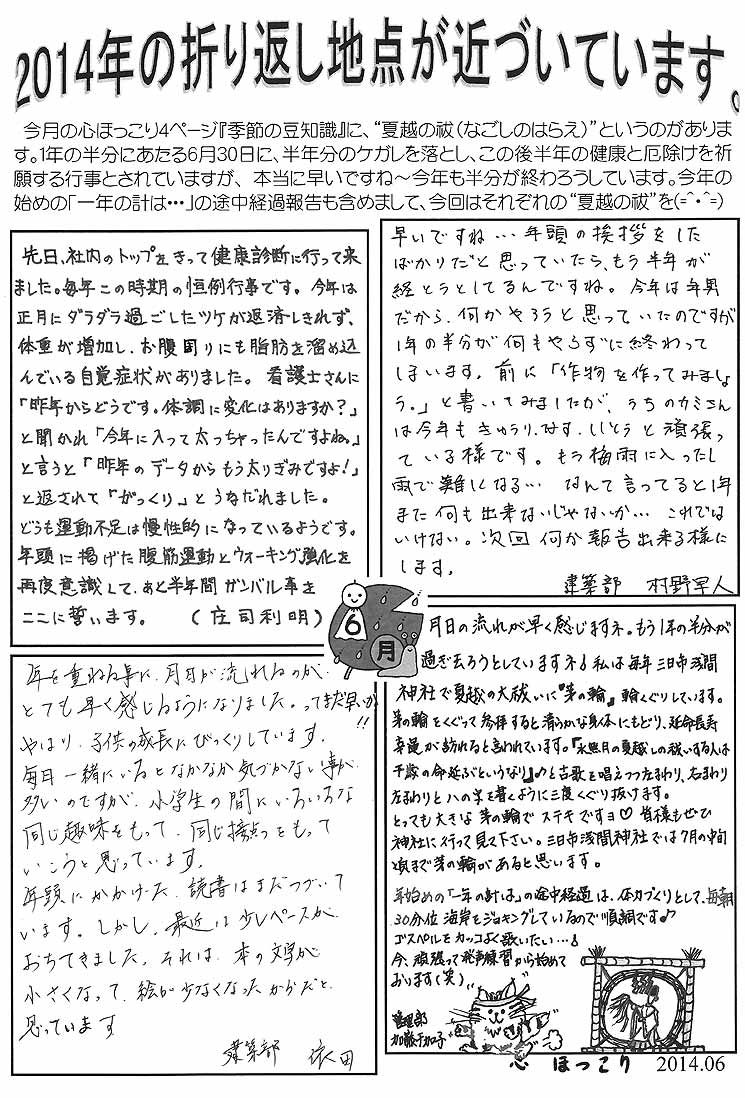 2014年の折り返し地点が近づいています。
今月の心ほっこり4ページ『季節の豆知識』に、“夏越の祓(なごしのはらえ)”というのがありま
す。1年の半分にあたる6月30日に、半年分のケガレを落とし、この後半年の健康と厄除けを祈
願する行事とされていますが、本当に早いですね～今年も半分が終わろうしています。今年の
始めの「一年の計は・・・」の途中経過報告も含めまして、今回はそれぞれの“夏越の祓”を(=^・^=)
先日、社内のトップをきって健康診断に行って来
ました。毎年この時期の恒例行事です。今年は
正月にダラダラ過ごしたツケが返済しきれず、
体重が増加し、お腹周りにも脂肪を溜め込
んでいる自覚症状がありました。看護士さんに
「昨年からどうです。体調に変化はありますか？」
と聞かれ「今年に入って太っちゃったんですよね。」
と言うと「昨年のデータからもう太りぎみですよ！」
と返されて「がっくり」とうなだれました。
どうも運動不足は慢性的になっているようです。
年頭に掲げた腹筋運動とウォーキング強化を
再度意識して、あと半年間ガンバル事を
ここに誓います。 (庄司利明)
早いですね…年頭の挨拶をした
ばかりだと思っていたら、もう半年が
経とうとしてるんですね。今年は年男
だから、何かやろうと思っていたのですが
1年の半分が何もやらずに終わって
しまいます。前に「作物を作ってみましょ
う。」と書いてみましたが、うちのカミさん
は今年もきゅうり、なす、ししとうと頑張っ
ている様です。もう梅雨に入ったし
雨で難しくなる… なんて言ってると1年
また何も出来ないじゃないか… これでは
いけない。次回何か報告出来る様に
します。
建築部 村野早人
6月
年を重ねる事に、月日が流れるのが、
とても早く感じるようになりました。ってまだ早いか!!
やはり、子供の成長にびっくりしています。
毎日一緒にいるとなかなか気づかない事が
多いのですが、小学生の間にいろいろな
同じ趣味をもって、同じ接点をもって
いこうと思っています。
年頭にかかげた、読書はまだつづいて
います。しかし、最近は少しペースが、
おちてきました。それは、本の文字が
小さくなって、絵が少なくなったからだと、
思っています
建築部 依田
月日の流れが早く感じますネ。もう1年の半分が
過ぎ去ろうとしていますネ♪私は毎年三日市浅間
神社で夏越の大祓いに『茅の輪』輪くぐりしています。
茅の輪をくぐって参拝すると清らかな身体にもどり、延命長寿
幸運が訪れると言われています。『水無月の夏越しの祓いする人は
千歳の命延ぶというなり』♪と古歌を唱えつつ左まわり、右まわり
左まわりと八の字を書くように三度くぐり抜けます。
とっても大きな茅の輪でステキですヨ♡皆様もぜひ
神社に行って見て下さい。三日市浅間神社では7月の中旬
頃まで茅の輪があると思います。
年始めの「一年の計は」の途中経過は、体力づくりとして、毎朝
30分位海岸をジョギングしているので順調です♪
ゴスペルをカッコよく歌いたい…♪
今、頑張って発声練習から始めて
おります(笑)
管理部
加藤千加子
心 ほっこり 2014.06